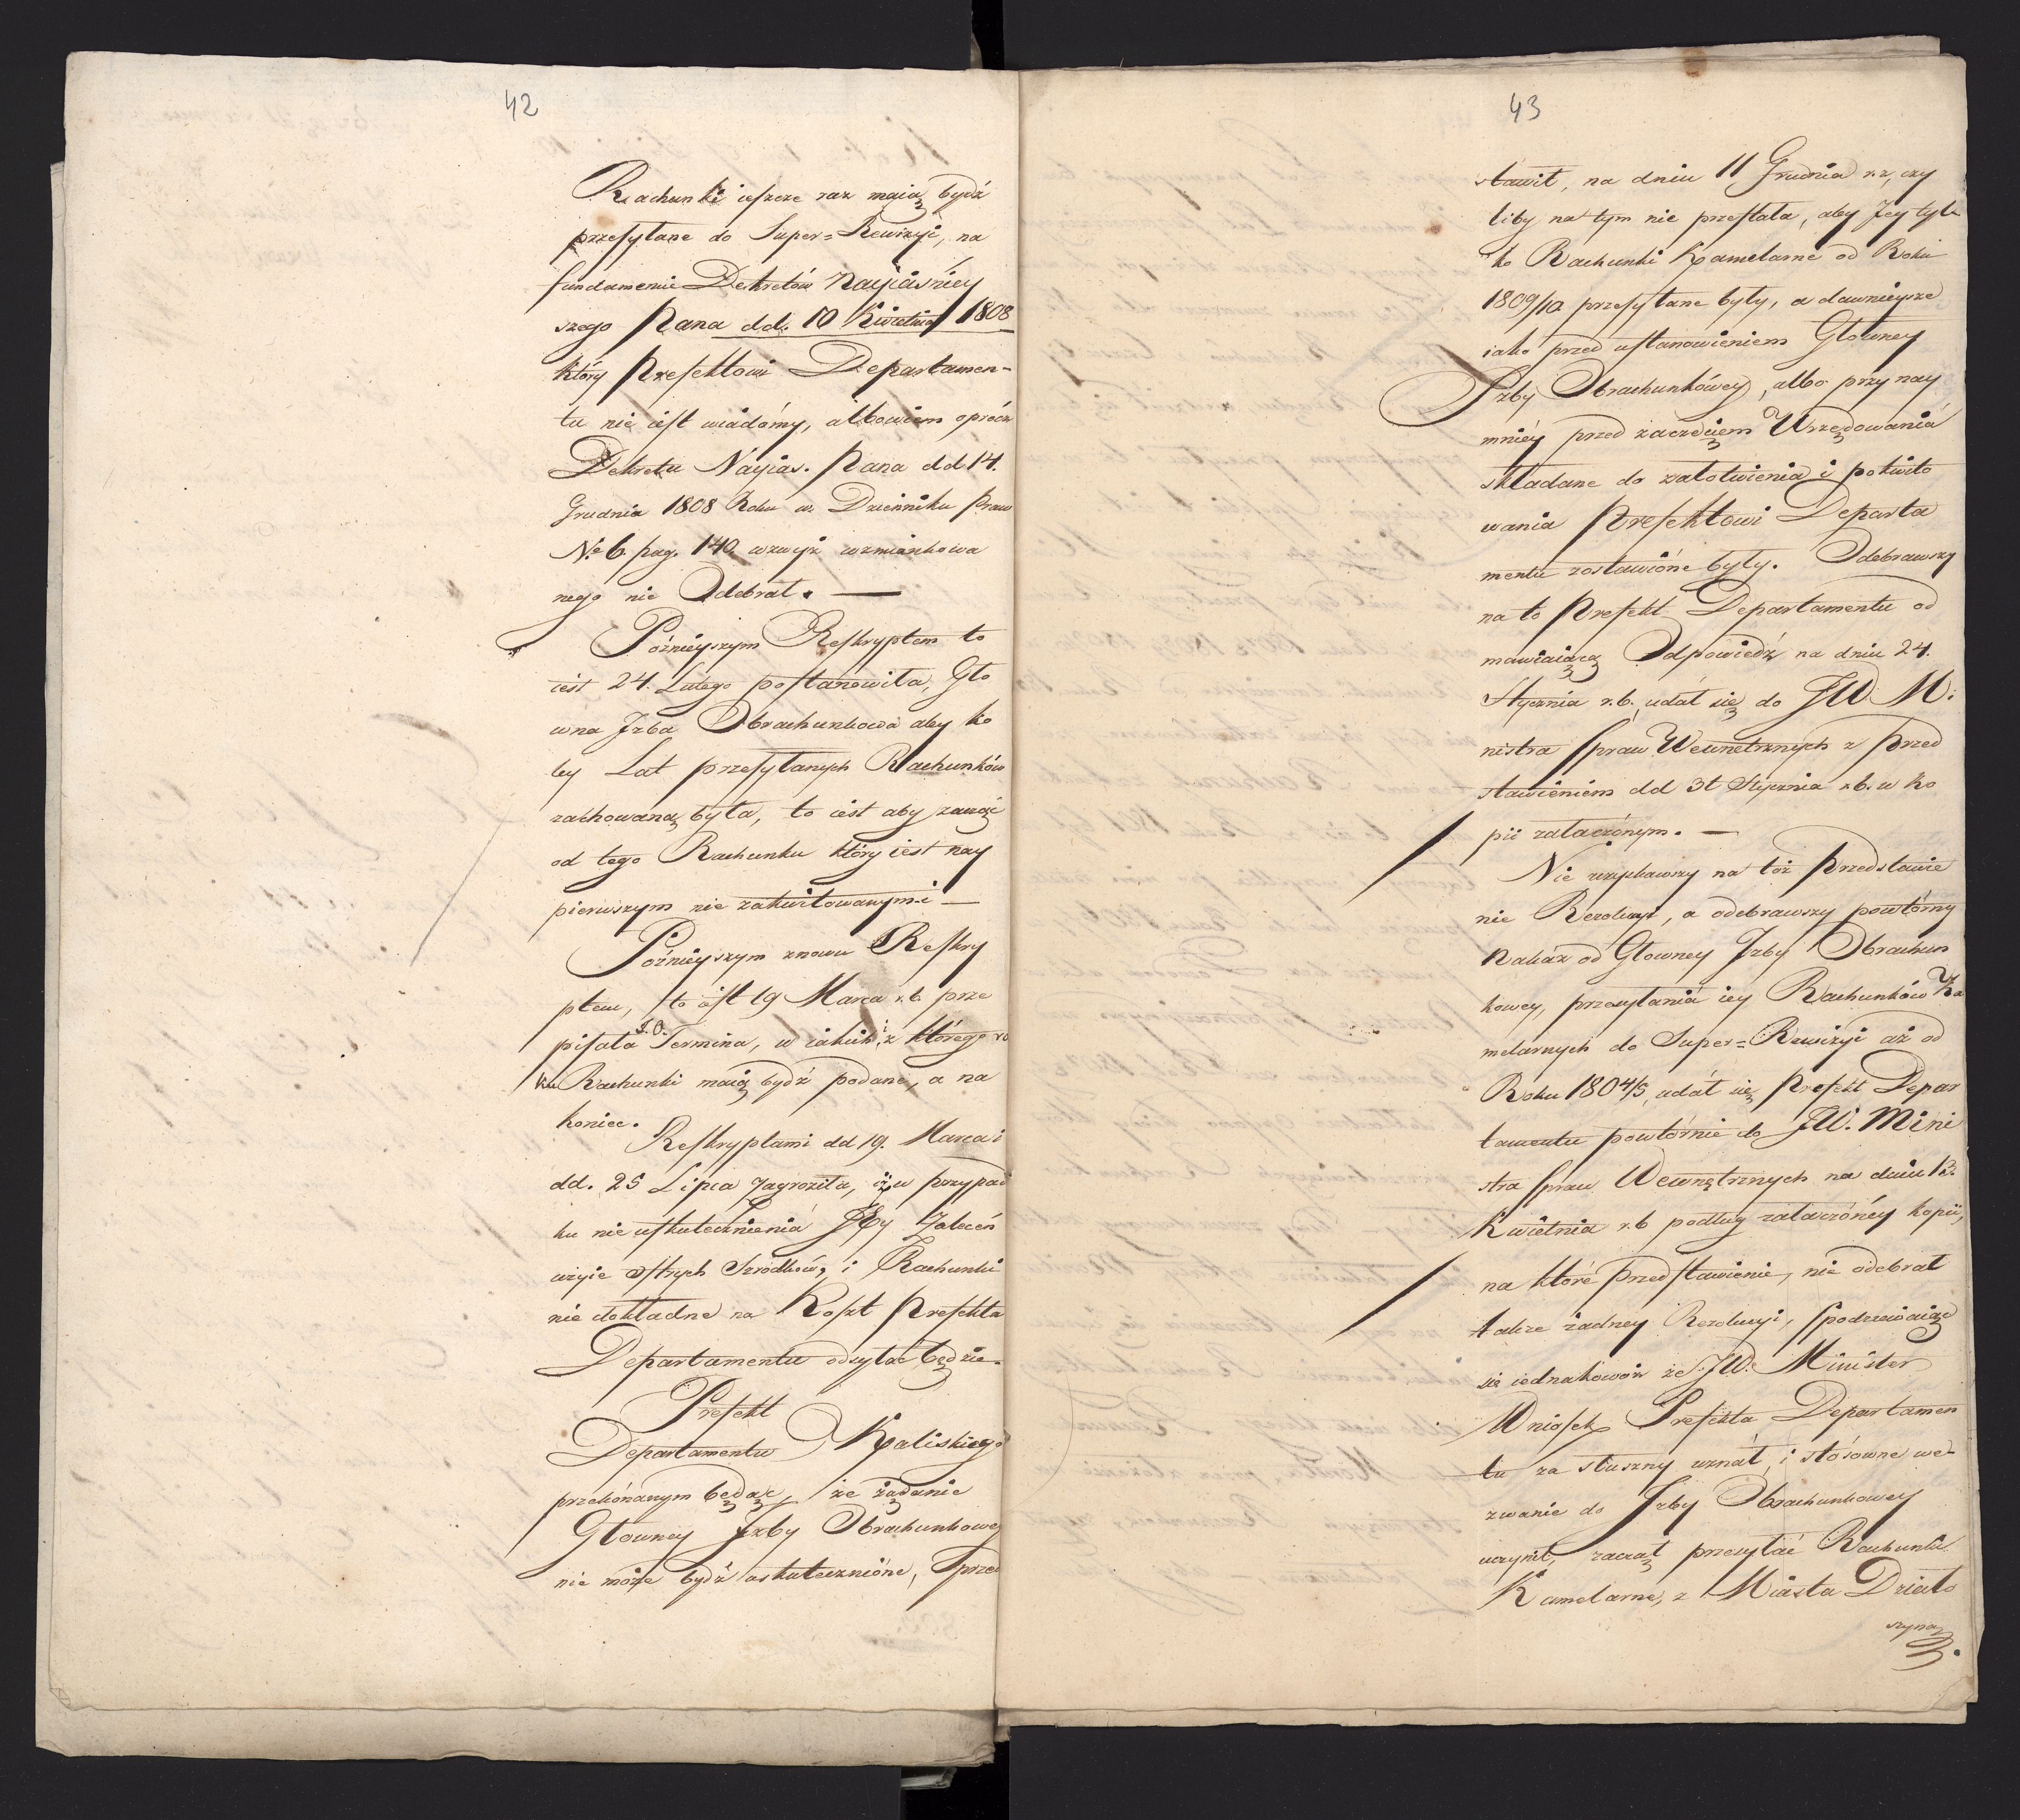 42
Rachunki ieszcze raz maią bydź
przesyłane do Super=Rewizyi, na
fundamencie Dekretów Nayiaśniey
szego Pana dd. 10 Kwietnia 1808
który Prefektowi Departamen-
tu nie iest wiadómy, albowiem oprócz
Dekretu Nayias. Pana dd 14.
Grudnia 1808 Roku w Dzienniku Praw
No 6 pag. 140 wzwyż wzmiankowa
nego nie Odebrał. —
Późnieyszym Reskryptem to
iest 24. Lutego postanowiła, Gło
wna Jzba Obrachunkowa aby ko
ley Lat przesyłanych Rachunków
zachowaną była, to iest aby zacząć
od tego Rachunku który iest nay
pierwszym nie zakwitowanym. —
Późnieyszym znowu Reskry
ptem, to iest 19 Marca r.b. prze
pisała J.O. Termina, w iakich i z którego ro
ku Rachunki maią bydź podane, a na
koniec.
Reskryptami dd 19. Marca i
dd. 25 Lipca zagroziła, iż w przypad
ku nie uskutecznienia JEy Zaleceń
użyie ostrych Srzodków, i Rachunki
nie dokładne na Koszt Prefekta
Departamentu odsyłać będzie.
Prefekt
Departamentu Kaliskiego
przekónanym będąc, że żądanie
Głowney Jzby Obrachunkowey
nie może bydź uskutecznióne, przed
43
stawił, na dniu 11 Grudnia r.z, czy
liby na tym nie przestała, aby Jey tyl
ko Rachunki Kamelarne od Roku
1809/10 przesyłane były, a dawnieysze
iako przed ustanowieniem Głowney
Jzby Obrachunkówey, albo przy nay
mniéy przed zaczęciem Urzędowania
składane do załotwienia i pokwito
wania Prefektowi Departa
mentu zostawióne były. Odebrawszy
na to Prefekt Departamentu od
mawiaiącą Odpowiedź na dniu 24.
Stycznia r.b. udał się do JW. Mi
nistra Spraw Wewnetrznych z Przed
stawieniem dd 31 Stycznia r.b. w ko
pii załaczónym. —
Nie uzyskawszy na toż Przedstawie
nie Rezolucyi, a odebrawszy powtórny
Nakaz od Głowney Jzby Obrachun
kowey, przesyłania iey Rachunków Ka
melarnych do Super=Rewizyi aż od
Roku 1804/5, udał się Prefekt Depar
tamentu powtórnie do JW. Mini
stra Spraw Wewnętrznych na dniu 13.
Kwietnia r.b podług załaczónéy kopii,
na któré Przedstawienie, nie odebrał
także żadney Rezolucyi, spodziewaiąc
się iednakowóż że JW. Minister
Wniosek Prefekta Departamen
tu za słuszny uznał, i stósowne we-
zwanie do Jzby Obrachunkowey
uczynił, zaczął przesyłać Rachunki
Kamelarne, z Miasta Działo
szyna